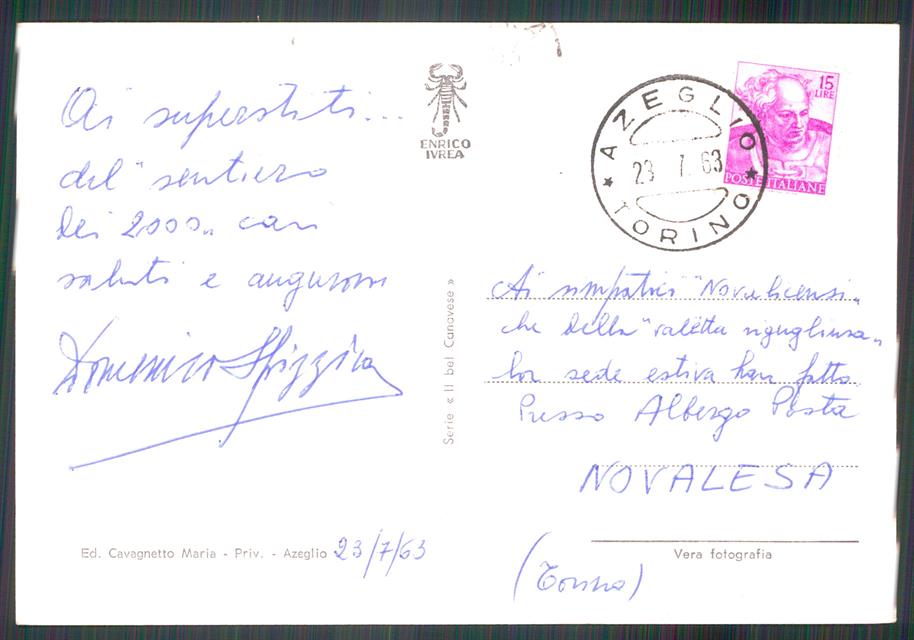 Ai superstiti...
del "sentiero
dei 2000„ cari
saluti e auguroni
Domenico
ENRICO
IVREA
AZEGLIO
23 7 63
TORINO
15
LIRE
POSTE ITALIANE
Serie « Il bel Canavese »
Ai simpatici "Novalicensi„
che della "valetta rigogliosa„
lor sede estiva han fatto
Presso Albergo Posta
NOVALESA
(Torino)
Ed. Cavagnetto Maria - Priv. - Azeglio 23/7/63
Vera fotografia